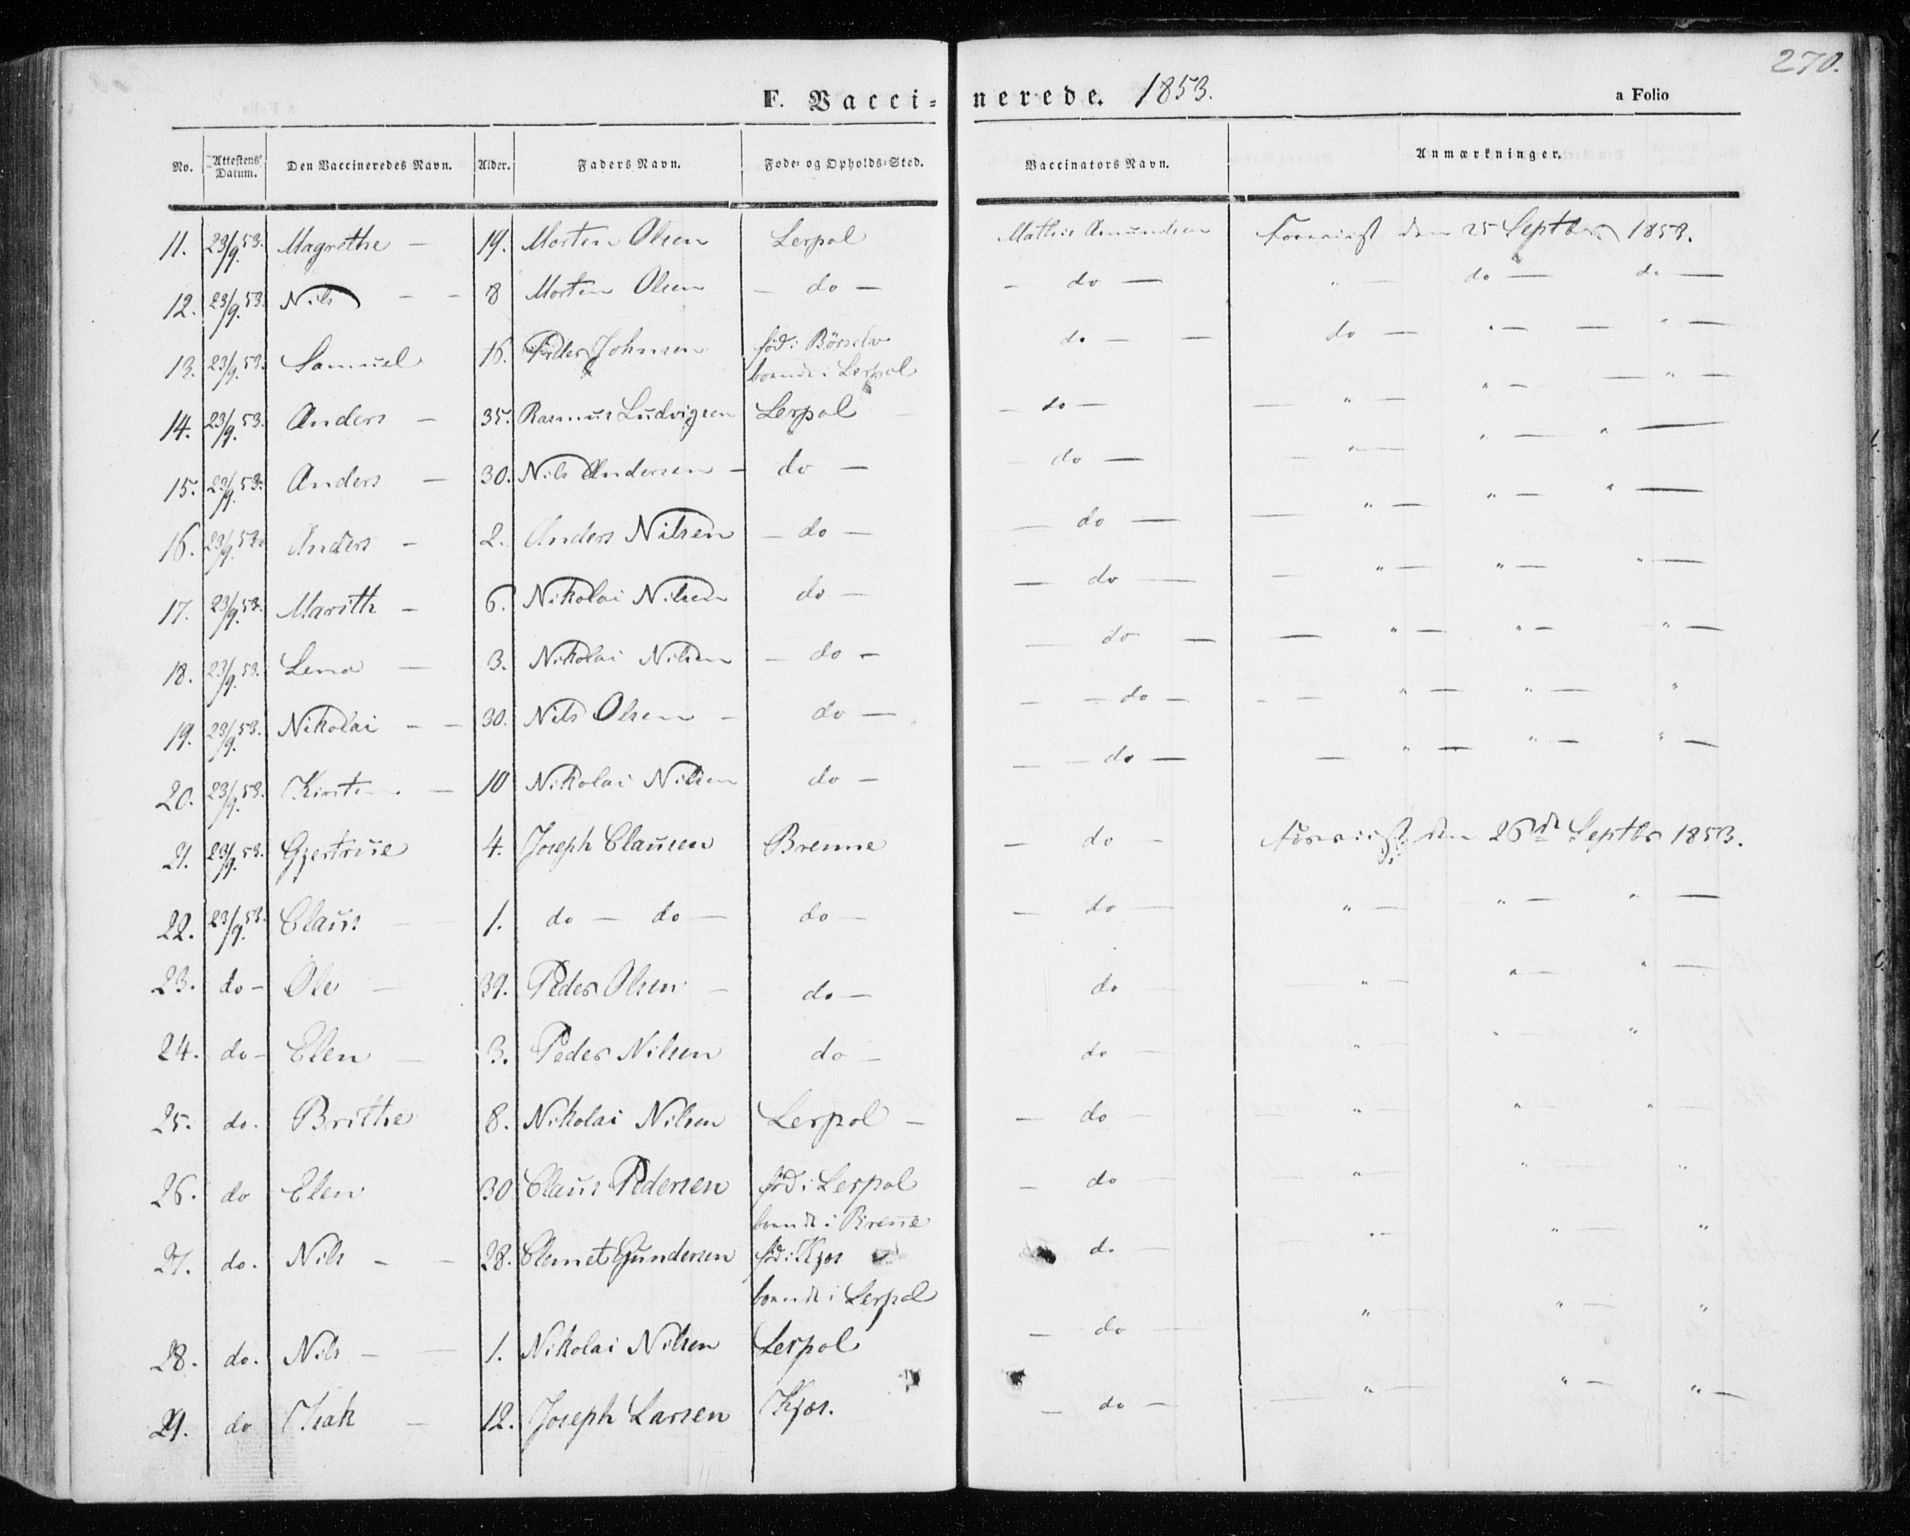 270.
F. Vaccinerede. 1853. a Folio
No. Attestens Datum. Den Vaccineredes Navn. Alder. Faders Navn. Føde- og Opholds-Sted. Vaccinators Navn. Anmærkninger.
11. 23/9. 53. Magrethe – 19. Morten Olsen Lerpol Mathis Amundsen Foreviist den 25 Septbr 1853.
12. 23/9. 53. Nils – – 8 Morten Olsen – do – – do – " – do – do –
13. 23/9. 53. Samuel 16. Peder Johnsen fød i Börselv do – – do – " – – " –
boende i Lerpol
14. 23/9. 53. Anders – 35. Rasmus Ludvigsen Lerpol – – do – – " – " – – " –
15. 23/9. 53. Anders – 30. Nils Andersen – do – – do – " – " – " –
16. 23/9. 53. Anders – 2. Anders Nilsen – do – – do – – " – " – " –
17. 23/9. 53. Marith – 6. Nikolai Nilsen do – – do – – " – " – " –
18. 23/9. 53. Lena – 3. Nikolai Nilsen – do – – do – – " – " – " –
19. 23/9. 53. Nikolai – – 30. Nils Olsen – do – – – do – – – " – " – "
20. 23/9. 53. Kirsten – 10 Nikolai Nilsen do – – – do – – – " – " – " –
21. 23/9. 53. Gjertrue 4. Joseph Clausen Brenne – do – Foreviist den 26de Septbr 1853.
22. 23/9. 53. Claus – 1. do – do – do – – do – " – " – " –
23. do – Ole – 39. Peder Olsen – do – do – " – " – " –
24. do – Elen – 3. Peder Nilsen do – do – " – " – "
25. do. Brithe 8. Nikolai Nilsen Lerpol – – do – " – " – " –
26. do Elen 30 Claus Pedersen fød i Lerpol – do – " – " – "
boende i Brenne
27. do. Nils – – 28. Clemet Gundersen fød i Kjæs do – " – " – "
boende i Lerpol
28. do. Nils – – 1. Nikolai Nilsen Lerpol – do – " – " – "
29. do Isak – 12. Joseph Larsen Kjæs. – do – – " – " – " –